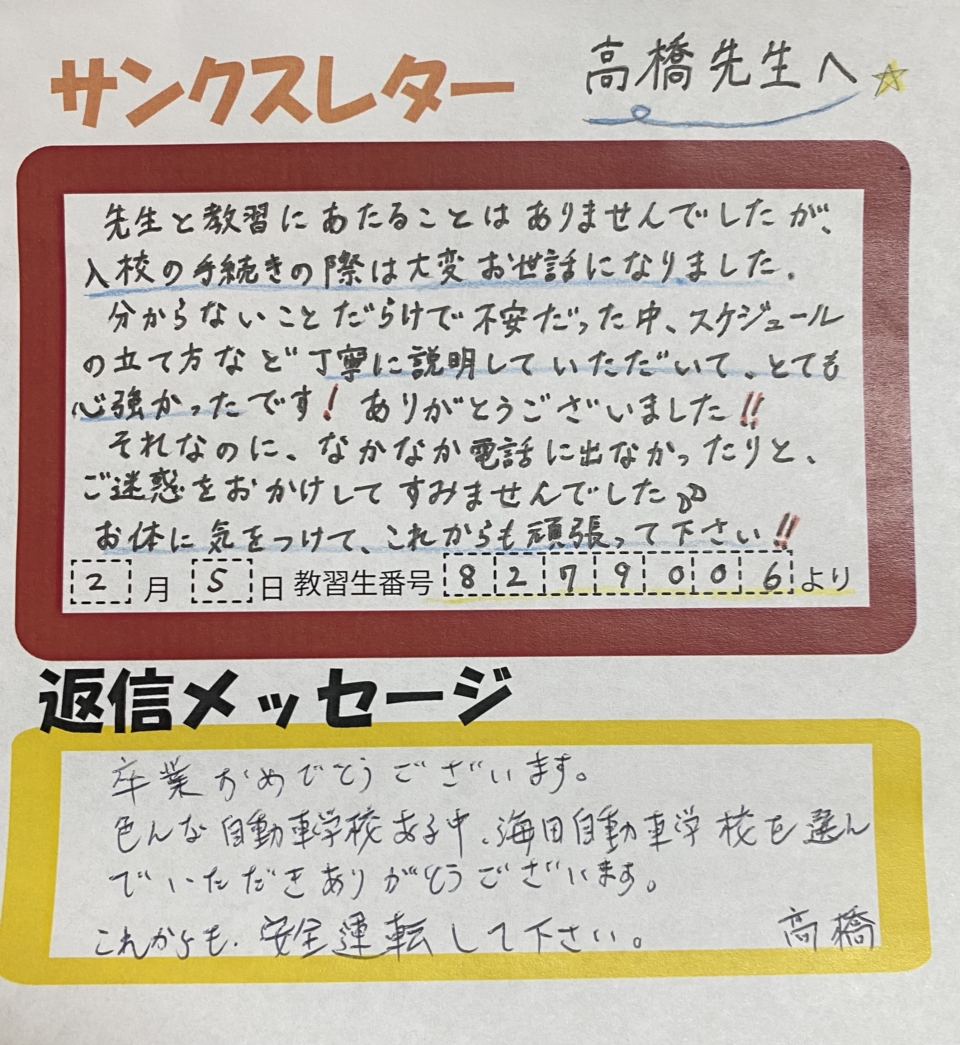 サンクスレター 高橋先生へ☆
先生と教習にあたることはありませんでしたが、
入校の手続きの際は大変お世話になりました。
分からないことだらけで不安だった中、スケジュール
の立て方など丁寧に説明していただいて、とても
心強かったです!ありがとうございました!!
それなのに、なかなか電話に出なかったりと、
ご迷惑をおかけしてすみませんでした
お体に気をつけて、これからも頑張って下さい!!
2月5日 教習生番号 8279006より
返信メッセージ
卒業おめでとうございます。
色んな自動車学校ある中、海田自動車学校を選ん
でいただきありがとうございます。
これからも、安全運転して下さい。 高橋